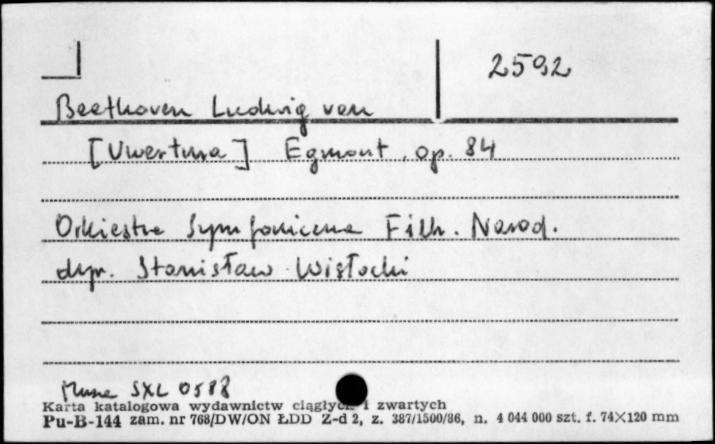 2592
Beethoven Ludwig van
[Uwertura] Egmont, op. 84
Orkiestra Symfoniczna Filh. Narod.
dyr. Stanisław Wisłocki
Muza SXL 0588
Karta katalogowa wydawnictw ciągłych i zwartych
Pu-B-144 zam. nr 768/DW/ON ŁDD Z-d 2, z. 387/1500/86, n. 4 044 000 szt. f. 74×120 mm